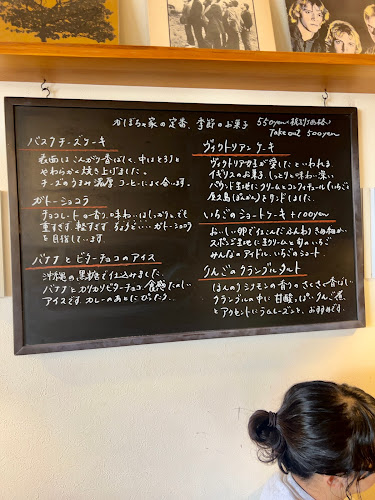 かぼちゃ家の定番、季節のお菓子 550yen(税サ込み)
Take out 500yen
バスクチーズケーキ
表面はこんがり香ばしく、中はとろりと
やわらかく焼き上げました。
チーズのうまみ濃厚 コーヒーによく合います。
ガトーショコラ
チョコレートの香り、味わいはしっかり。でも
重すぎず、軽すぎず ちょうど・・・ガトーショコラ
を目指しています。
バナナとビターチョコのアイス
沖縄の黒糖で仕込みました。
バナナとカリカリビターチョコ 食感たのしい
アイスです。カレーのあとにぴったり。
ヴィクトリアンケーキ
ヴィクトリア女王が愛したといわれる
イギリスのお菓子。しっとりと味わい深い
パウンド生地にクリームとコンフィチュール(いちごと
)をサンドしました。
いちごのショートケーキ +100yen
おいしい卵で仕込んだふんわりきめ細かい
スポンジ生地に生クリームと旬のいちご
みんなのアイドル、いちごのショート。
りんごのクランブルタルト
ほんのりシナモンの香り。さくさく香ばしい
クランブルの中に 甘酸っぱいりんご煮
とアクセントにラムレーズンと、おすすめです。